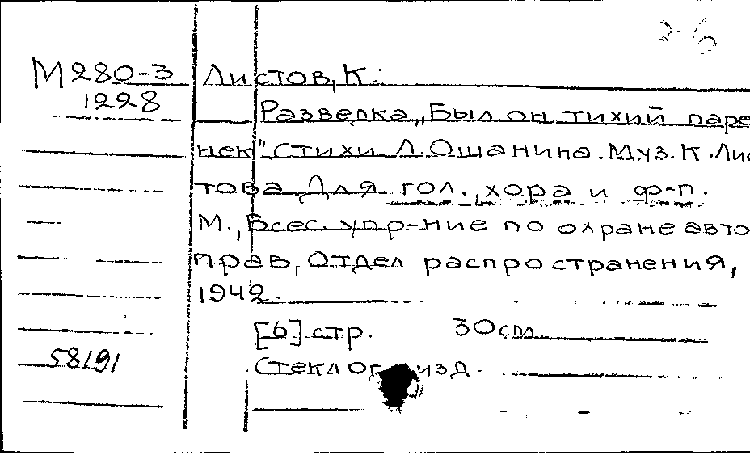 М280-3 Листов, К.
1228 Разведка „Был он тихий паре
нек" Стихи Л. Ошанина. Муз. К. Лис
това. Для гол., хора и ф-п.
М., Всес. упр-ние по охране авто
прав, Отдел распространения,
1942.
[6] стр. 30см
58191 Стеклогр. изд.